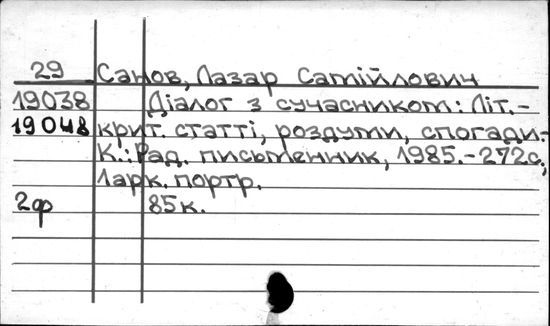 29 Санов, Лазар Самійлович
19038 Діалог з сучасником: Літ.-
19048 крит. статті, роздуми, спогади.-
К.: Рад. письменник, 1985.-272с.,
1арк. портр.
2ф 85к.